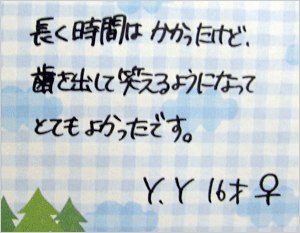 長く時間は かかったけど、
歯を出して笑えるようになって
とてもよかったです。
Y.Y 16才 ♀